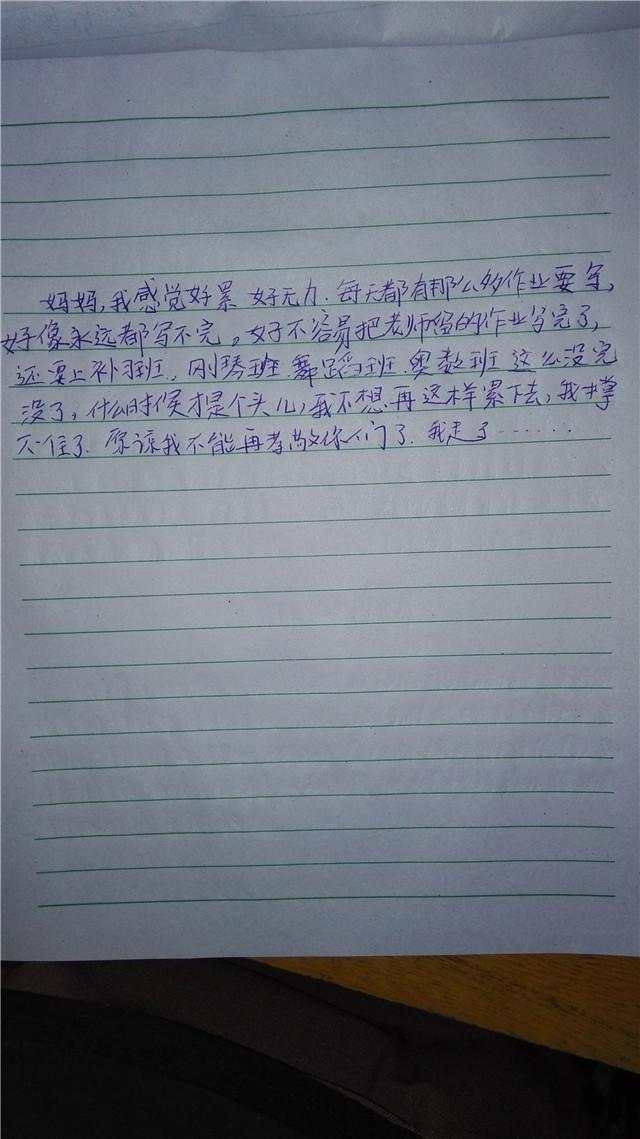 妈妈,我感觉好累 好无力.每天都有那么多作业要写,
好像永远都写不完。好不容易把老师留的作业写完了,
还要上补习班、刚琴班 舞蹈班.奥数班 这么没完
没了,什么时候才是个头儿,我不想再这样累下去,我撑
不住了.原谅我不能再孝敬你们了.我走了……